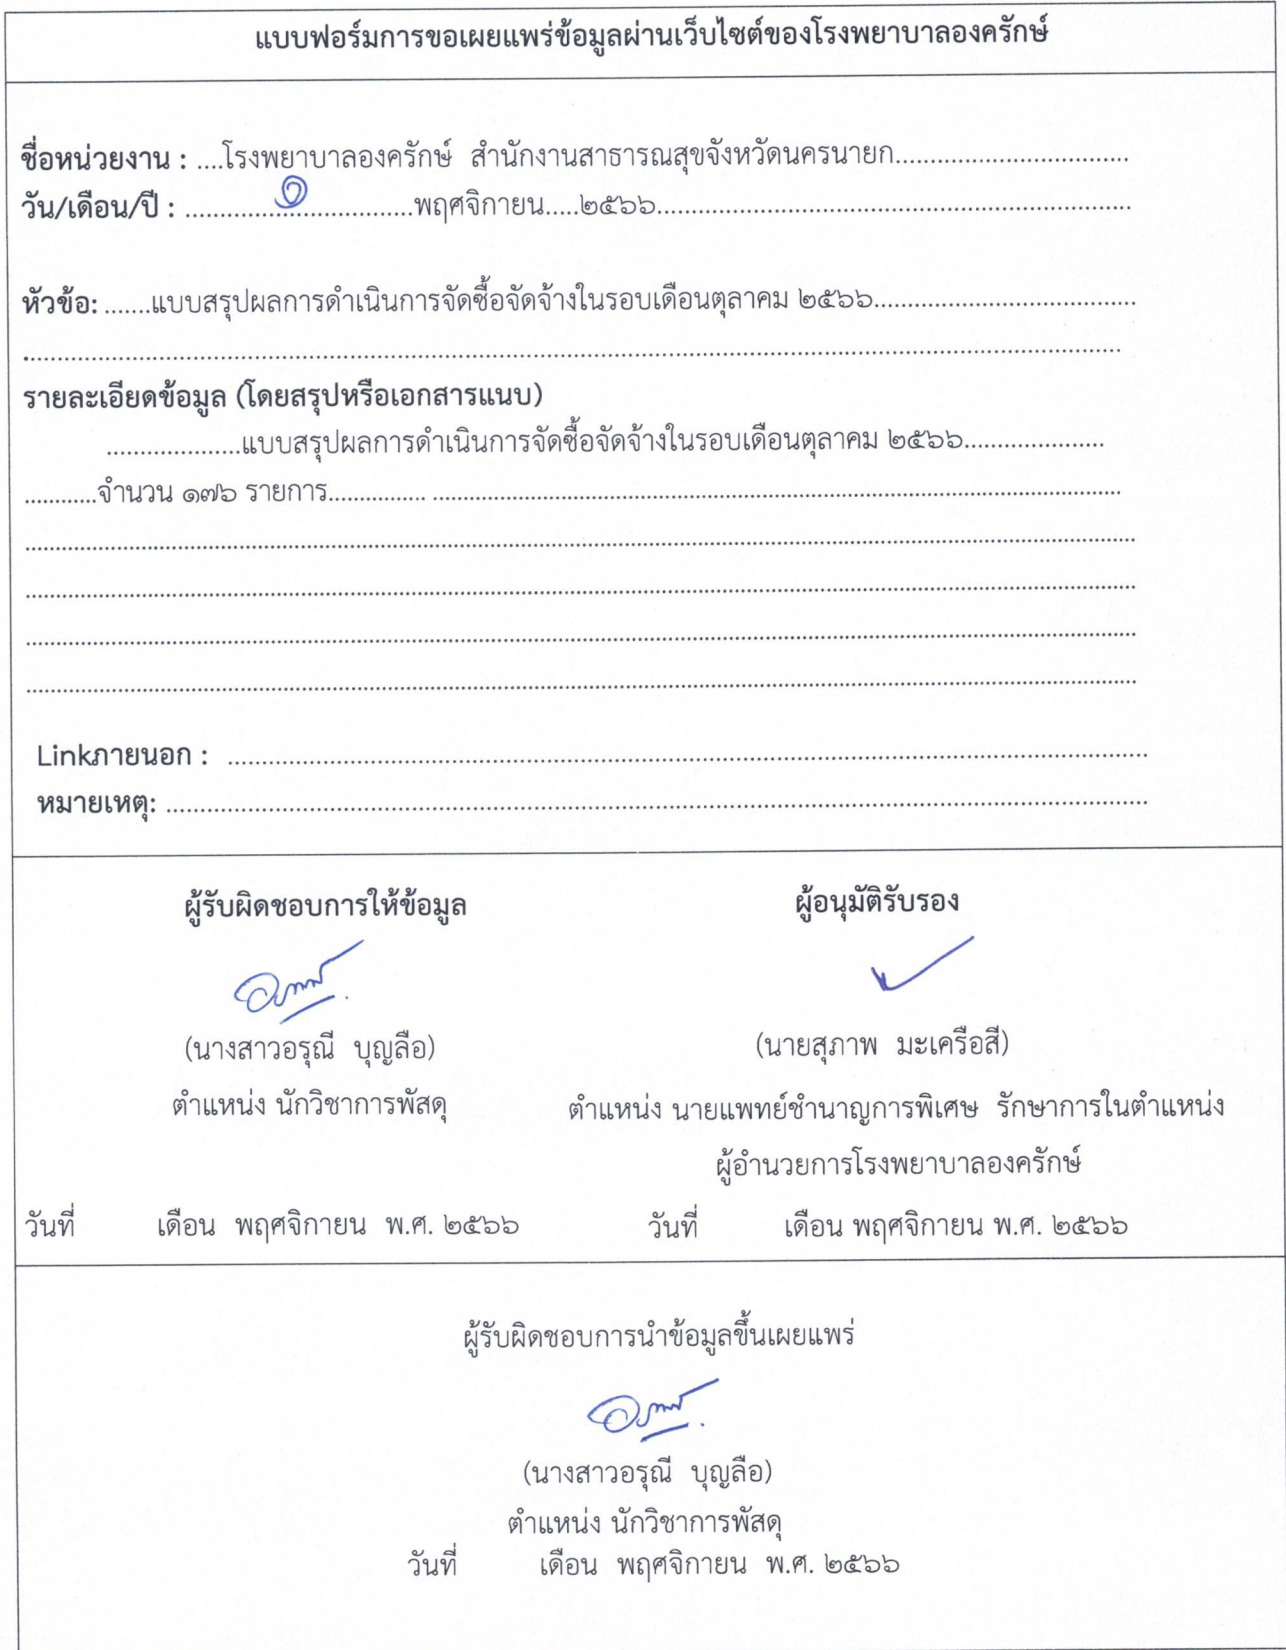 แบบฟอร์มการขอเผยแพร่ข้อมูลผ่านเว็บไซต์ของโรงพยาบาลองครักษ์
ชื่อหน่วยงาน : ....โรงพยาบาลองครักษ์ สำนักงานสาธารณสุขจังหวัดนครนายก..................................
วัน/เดือน/ปี : ................๑................พฤศจิกายน.....๒๕๖๖......................................................................
หัวข้อ: .......แบบสรุปผลการดำเนินการจัดซื้อจัดจ้างในรอบเดือนตุลาคม ๒๕๖๖.......................................
รายละเอียดข้อมูล (โดยสรุปหรือเอกสารแนบ)
....................แบบสรุปผลการดำเนินการจัดซื้อจัดจ้างในรอบเดือนตุลาคม ๒๕๖๖.....................
............จำนวน ๑๗๖ รายการ................ ....................................................................................
Linkภายนอก : ..........................................................................................
หมายเหตุ: ..........................................................................................
ผู้รับผิดชอบการให้ข้อมูล
(นางสาวอรุณี บุญลือ)
ตำแหน่ง นักวิชาการพัสดุ
วันที่ เดือน พฤศจิกายน พ.ศ. ๒๕๖๖
ผู้อนุมัติรับรอง
(นายสุภาพ มะเครือสี)
ตำแหน่ง นายแพทย์ชำนาญการพิเศษ รักษาการในตำแหน่ง
ผู้อำนวยการโรงพยาบาลองครักษ์
วันที่ เดือน พฤศจิกายน พ.ศ. ๒๕๖๖
ผู้รับผิดชอบการนำข้อมูลขึ้นเผยแพร่
(นางสาวอรุณี บุญลือ)
ตำแหน่ง นักวิชาการพัสดุ
วันที่ เดือน พฤศจิกายน พ.ศ. ๒๕๖๖